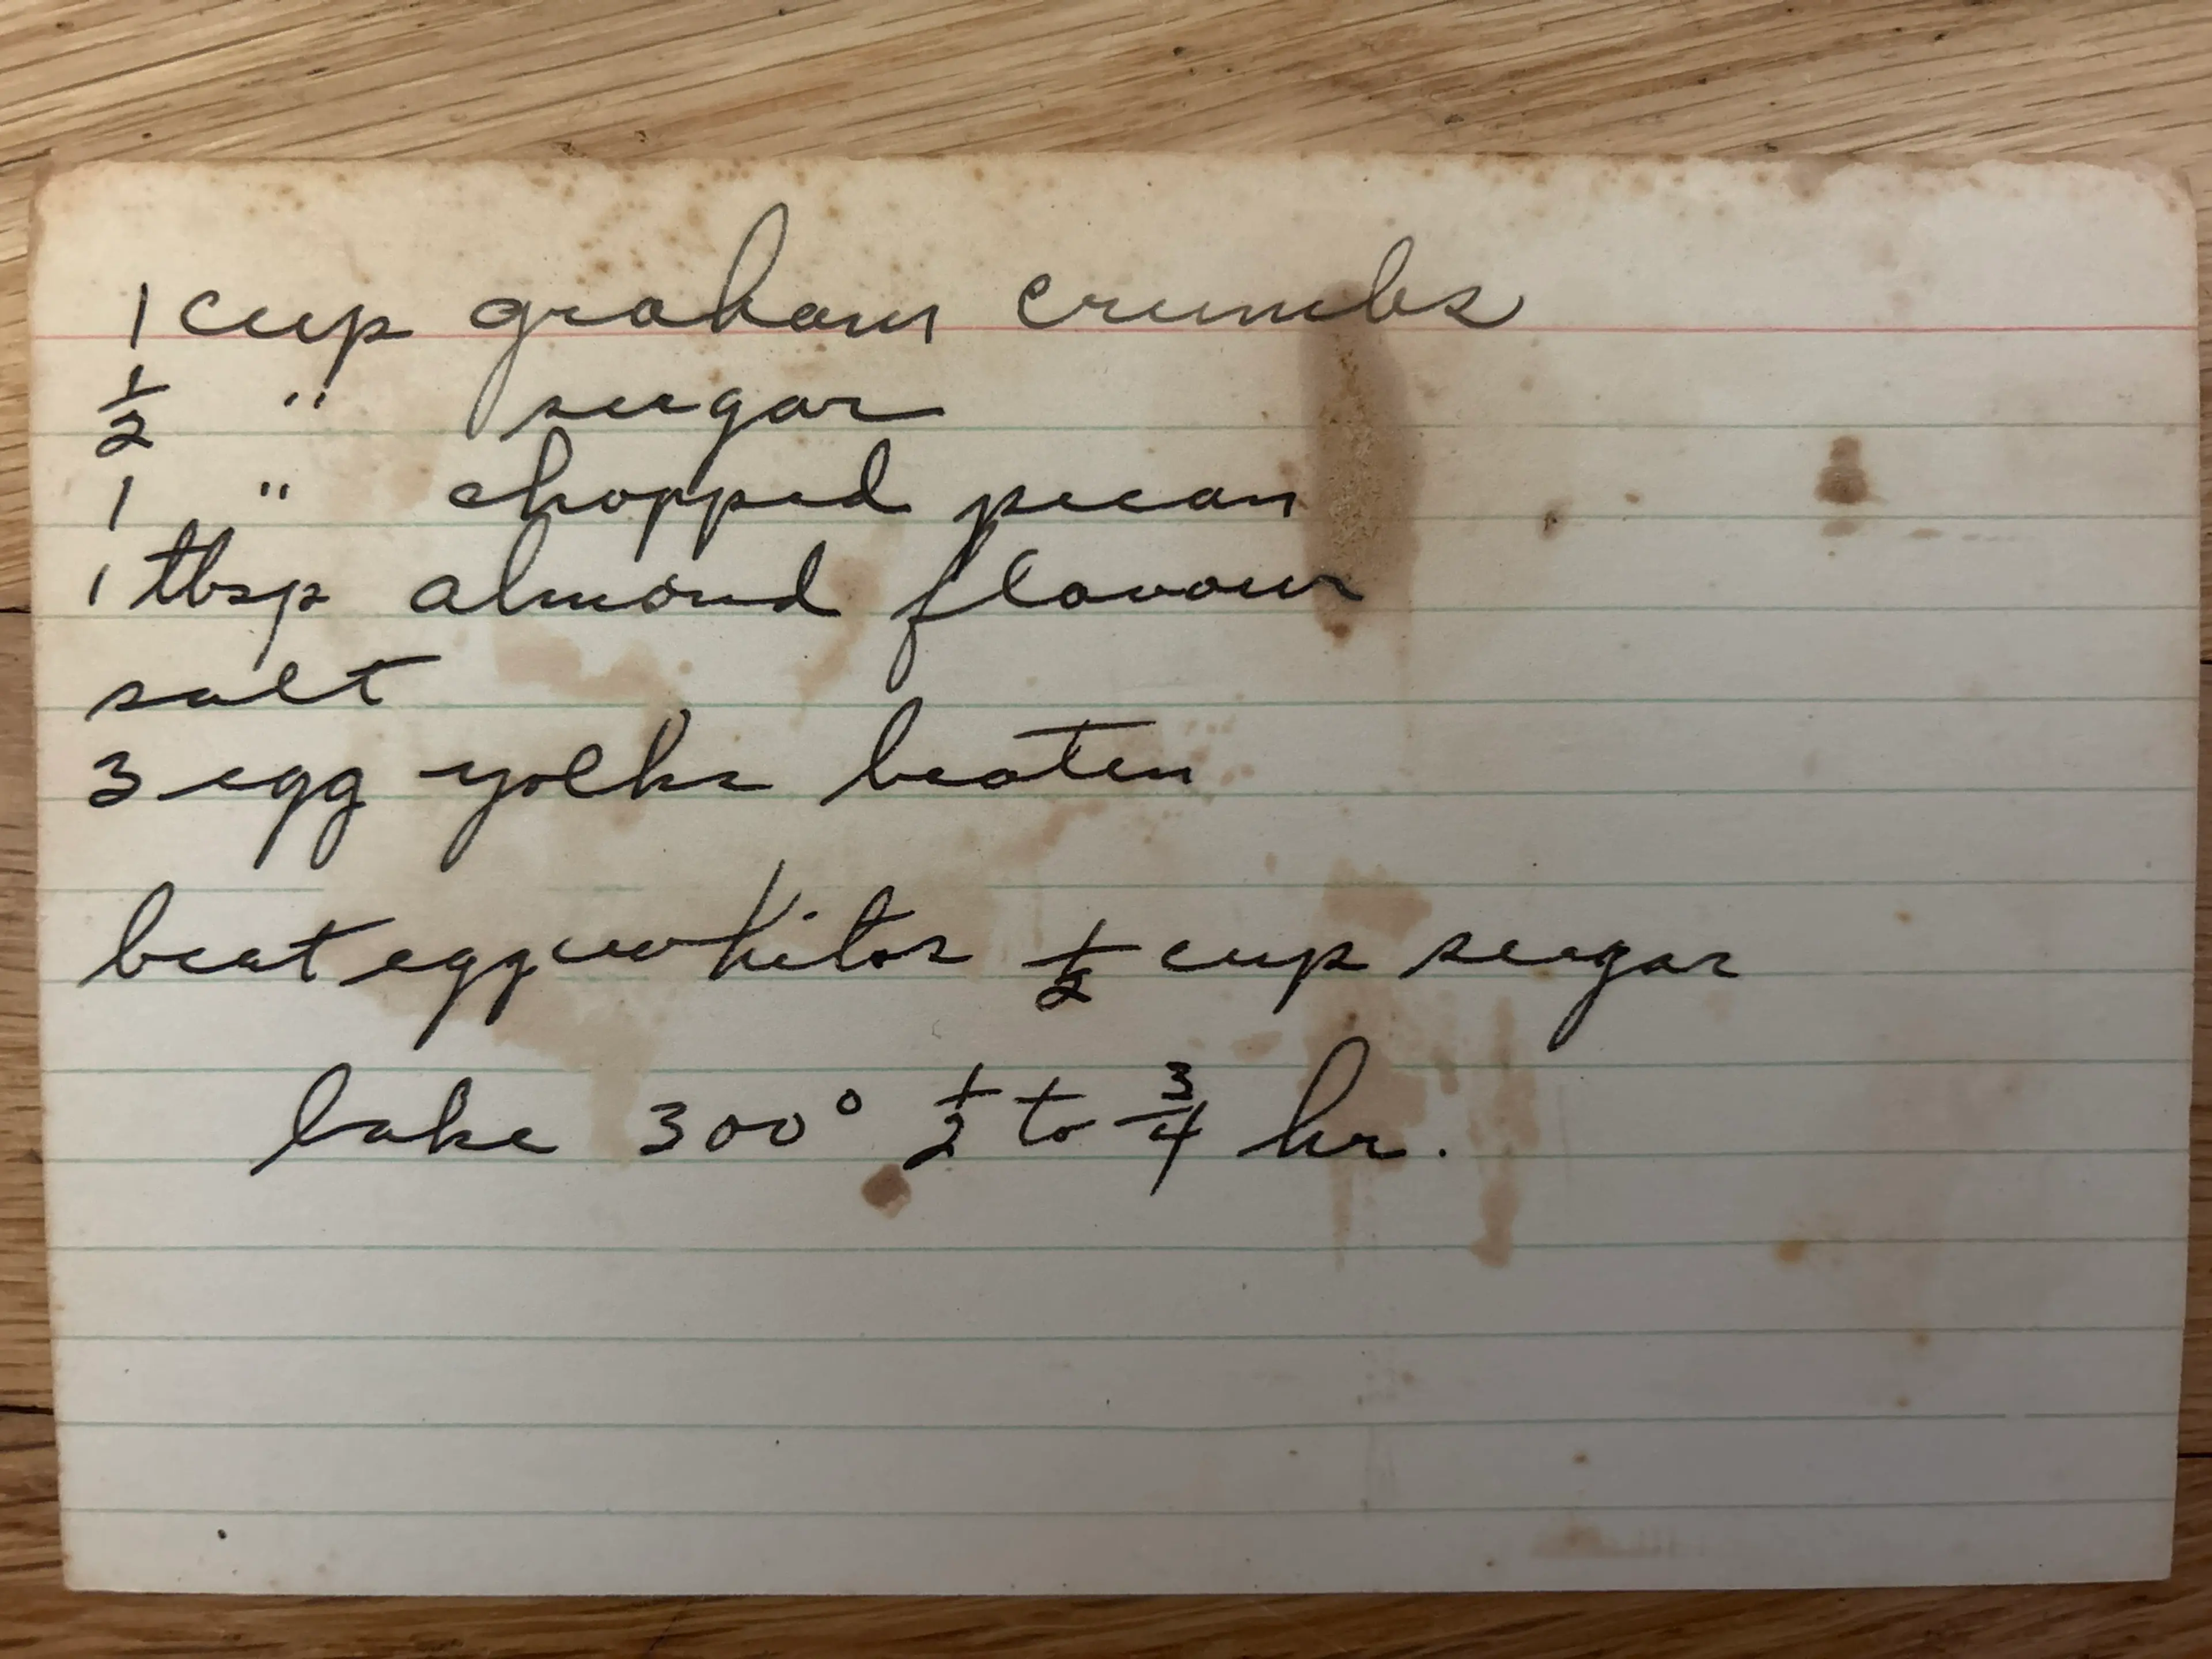 1 cup graham crumbs
½ " sugar
1 " chopped pecan
1 tbsp almond flavour
salt
3 egg yolks beaten
beat egg whites ½ cup sugar
bake 300° ½ to ¾ hr.